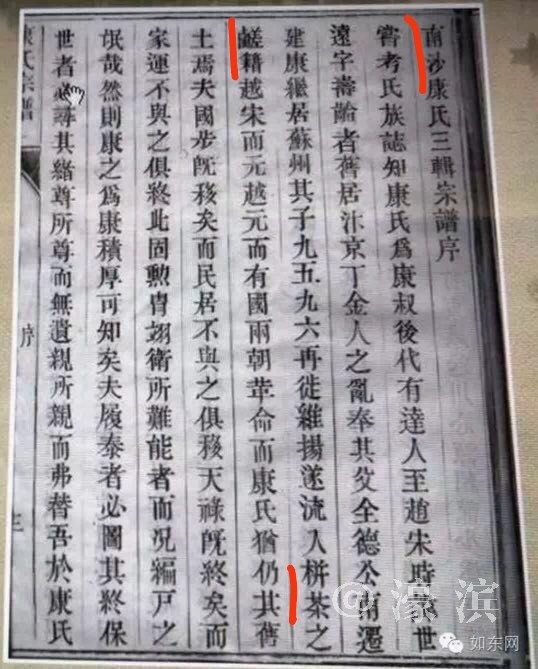 南沙康氏三輯宗譜序
嘗考氏族誌知康氏爲康叔後代有達人至趙宋時世
遠字壽齡者舊居汴京丁金人之亂奉其父全德公南遷
建康繼居蘇州其子九五九六再徙維揚遂流入栟茶之
鹺籍越宋而元越元而有國兩朝革命而康氏猶仍其舊
土焉夫國步旣移矣而民居不與之俱移天祿旣終矣而
家運不與之俱終此固勲胄翊衛所難能者而況編戶之
氓哉然則康之爲康積厚可知矣夫履泰者必圖其終保
世者必尋其緒尊所尊而無遺親所親而弗替吾於康氏
康氏宗譜
序
三
@濠滨
如东网